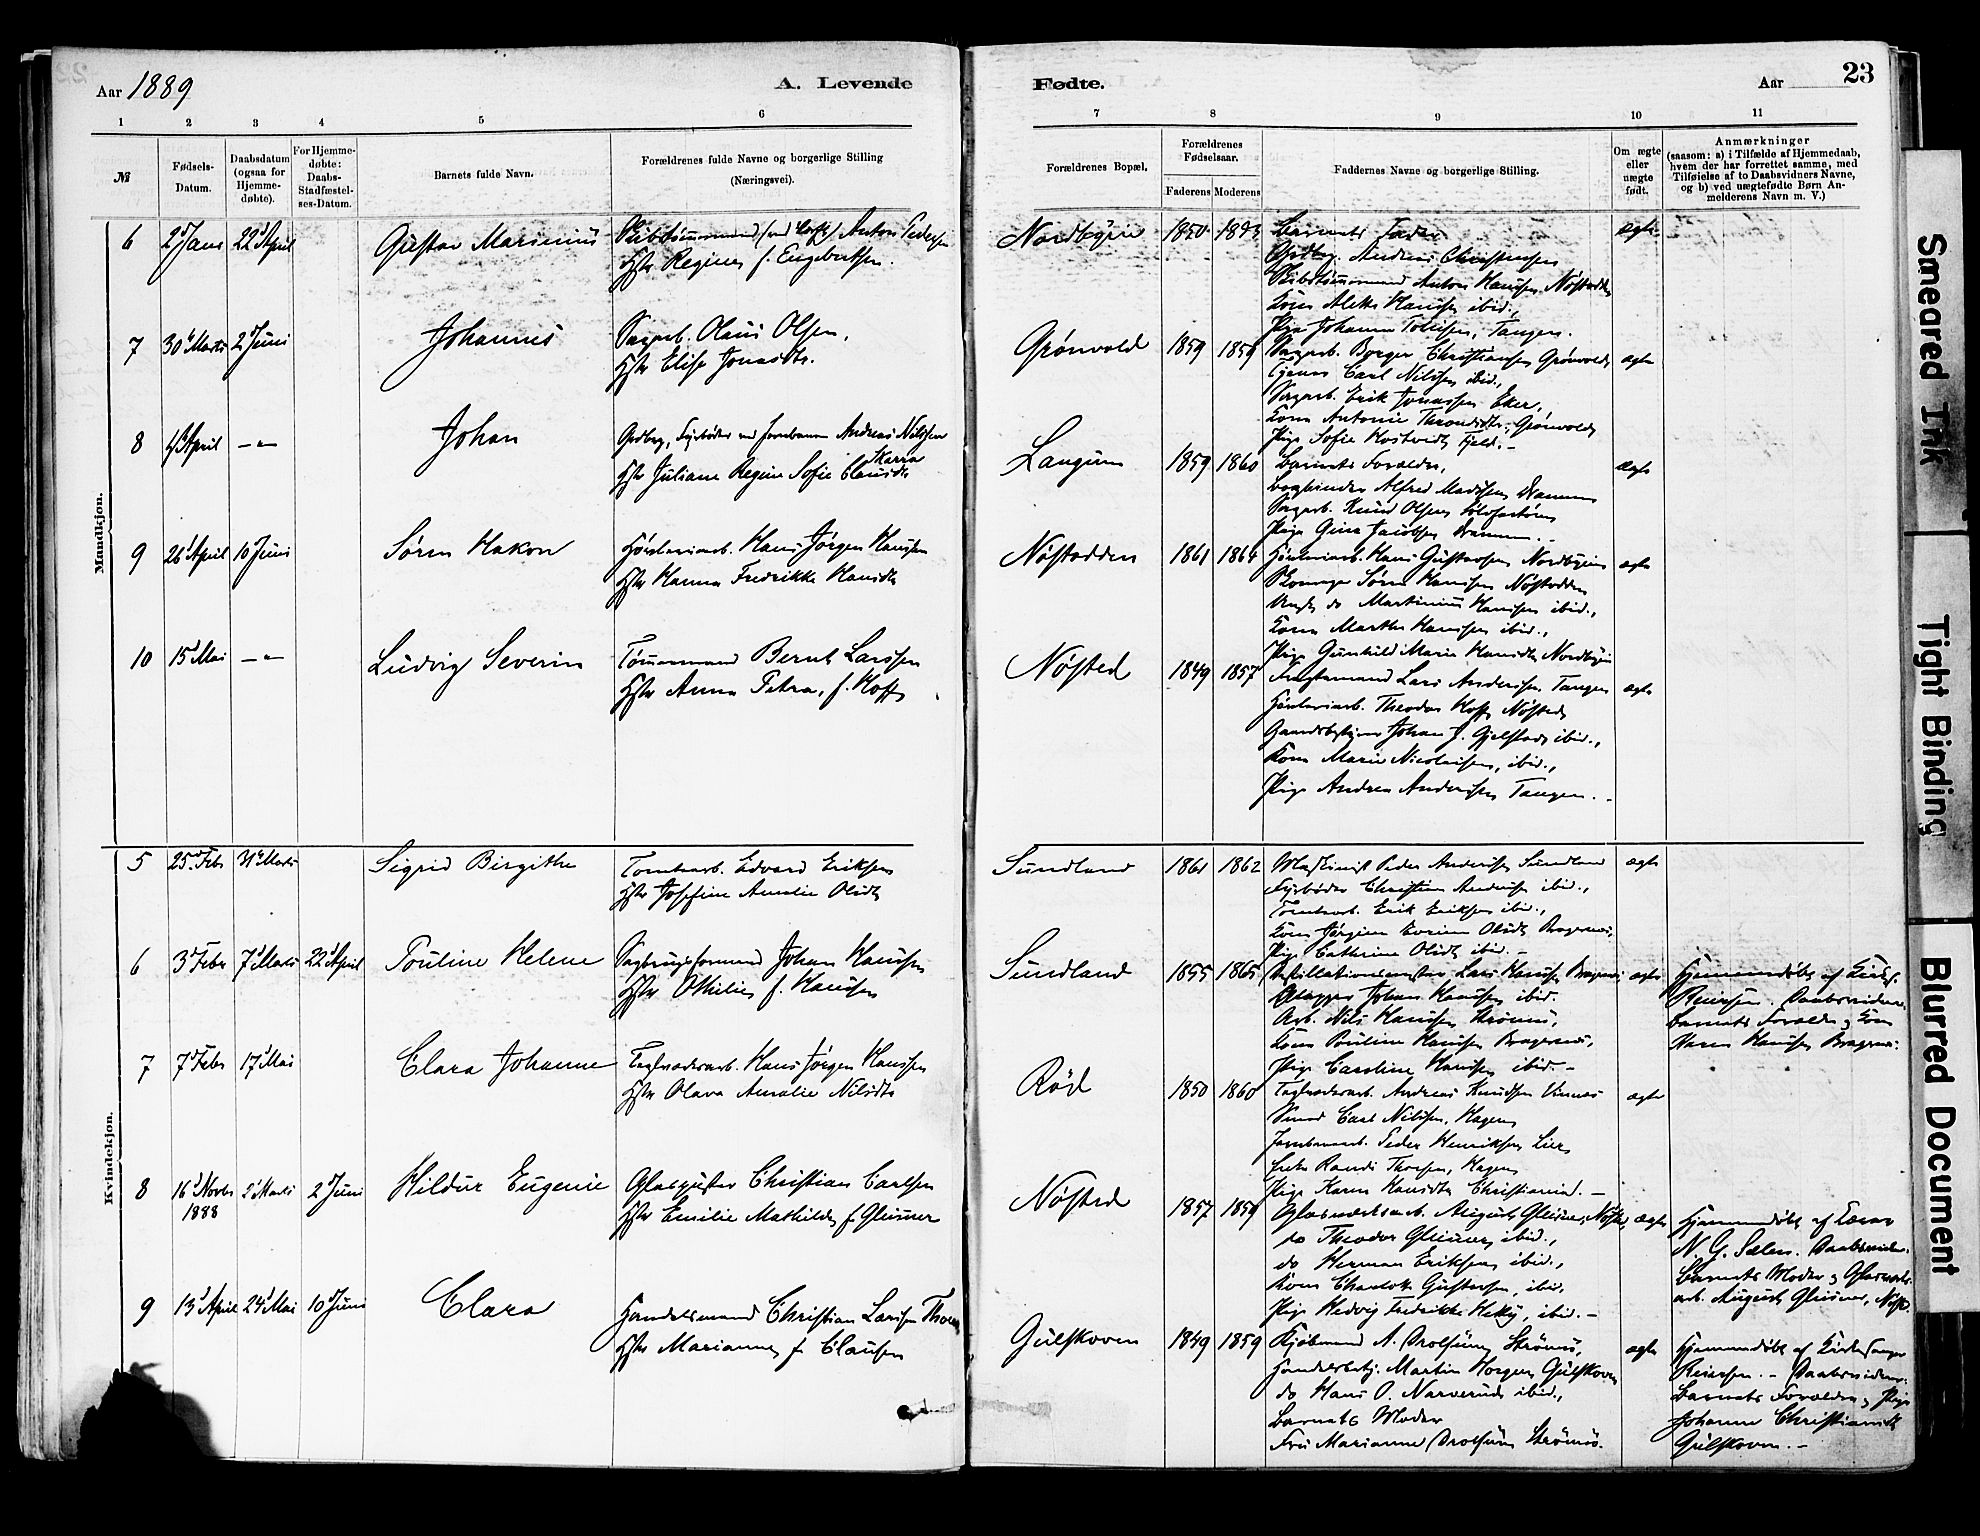 Aar 1889
A. Levende
Fødte.
Aar
23
1 2 3 4 5 6 7 8 9 10 11
№
Fødsels-Datum.
Daabsdatum (ogsaa for Hjemme-døbte).
For Hjemme-døbte: Daabs-Stadfæstel-ses-Datum.
Barnets fulde Navn.
Forældrenes fulde Navne og borgerlige Stilling (Næringsvei).
Forældrenes Bopæl.
Forældrenes Fødselsaar.
Faderens Moderens
Faddernes Navne og borgerlige Stilling.
Om ægte eller uægte født.
Anmærkninger
(saasom: a) i Tilfælde af Hjemmedaab,
hvem der har forrettet samme, med
Tilføielse af to Daabsvidners Navne,
og b) ved uægtefødte Børn An-
melderens Navn m. V.)
Mandkjøn.
6 2 Jan 22 April Gustav Marinius Anton Pedersen
Hstr Regine f. Engebretsen.
Nordbyen 1850 ægte
Barnets Fader
Andreas Christensen
Anton Hansen, Nøstodden
Kone Alette Hansen ibid.,
Pige Johanne Tollefsen, Tangen.
7 30 Marts 2 Juni Johannes Sagarb. Olaus Olsen,
Hstr Elise Jonasdtr.
Grønvold 1859 1859 ægte
Sagarb. Borger Christiansen Grønvold,
Carl Nilssen ibid.,
Sagarb. Erik Jonassen Eker,
Kone Antonie Throndsdtr, Grønvold
Pige Sofie Fjeld. -
8 4 April -"- Johan Andreas Nilssen Skarra
Hstr Juliane Regine Sofie Clausdtr
Langum 1859 1860 ægte
Barnets Forældre,
Bogbinder Alfred Madsen Drammen
Sagarb. Knud Olsen
Pige Gina Jacobsen Drammen. -
9 26 April 10 Juni Søren Hakon Hans Jørgen Hanssen
Hstr Hanna Fredrikke Hansdtr
Nøstodden 1861 1864 ægte
Hans Gustavsen Nordbyen
Søren Hansen Nøstodden
Ungk. do Martinius Hansen ibid.,
Kone Marthe Hansen ibid.,
Pige Gunhild Marie Hansdtr Nordbyen
10 15 Mai -"- Ludvig Severin Tømmermand Bernt Larssen
Hstr Anna Petra, f. Hoff
Nøsted 1849 1857 ægte
Lars Andersen Tangen
Theodor Hoff, Nøsted,
Johan J. Gjelstad, ibid.,
Kone Marie Nicolaisen, ibid.,
Pige Andrea Andersen Tangen. -
Kvindekjøn.
5 25 Febr 31 Marts Sigrid Birgithe Tomtearb. Edvard Eriksen
Hstr Josefine Amalie Olsdtr
Sundland 1861 1862 ægte
Maskinist Peder Andersen Sundland
Fyrbøder Christian Andersen ibid.,
Tomtearb. Erik Eriksen ibid.,
Kone Jørgine Olsdtr Bragernæs,
Pige Cathrine Olsdtr ibid. -
6 3 Febr 7 Marts 22 April Pouline Helene Sagbrugsformand Johan Hanssen
Hstr Othilie f. Hansen
Sundland 1855 1865 ægte
Lars Hansen Bragernæs,
Johan Hanssen ibid.
Arb. Nils Hanssen Strømsø,
Kone Pouline Hanssen Bragernæs,
Pige Caroline Hansen ibid. -
Hjemmedøbt af Kirkes.
Reiersen. Daabsvidner
Barnets Forældre og Kone
Karen Hansen Bragernæs.
7 7 Febr 17 Mai Clara Johanne Teglværksarb. Hans Jørgen Hanssen
Hstr Olava Amalie Nilsdtr
Rød 1850 1860 ægte
Teglværksarb. Andreas Knudsen
Smed Carl Nilssen, Hagen,
Jernbanearb. Peder Henriksen Lier
Enke Randi Thorsen, Hagen
Pige Karen Hansdtr Christiania. -
8 16 Novbr 1888 2 Marts 2 Juni Hildur Eugenie Glaspuster Christian Carlsen
Hstr Emilie Mathilde f. Gleisner
Nøsted 1857 1859 ægte
Glasværksarb. August Gleisner, Nøsted,
do Theodor Gleisner, ibid.,
do Herman Eriksen, ibid.,
Kone Charlotte Gustavsen, ibid.,
Pige Hedvig Fredrikke ibid. -
Hjemmedøbt af Lærer
N. G. Sælen. Daabsvidner
Barnets Moder og Glasværks-
arb. August Gleisner, Nøsted.
9 13 April 24 Mai 10 Juni Clara Handelsmand Christian Larssen Thorn
Hstr Marianne f. Clausen
Gulskoven 1849 1859 ægte
Kjøbmand A. Strømsø,
Handelsbetj. Martin Horgen Gulskoven
do Hans O. Narverud ibid.,
Barnets Moder
Fru Marianne Strømsø.
Hjemmedøbt af Kirkesanger
Reiersen. - Daabsvidner:
Barnets Forældre, Pige
Johanne Christiansdtr
Gulskoven. -
Smeared Ink
Tight Binding
Blurred Document